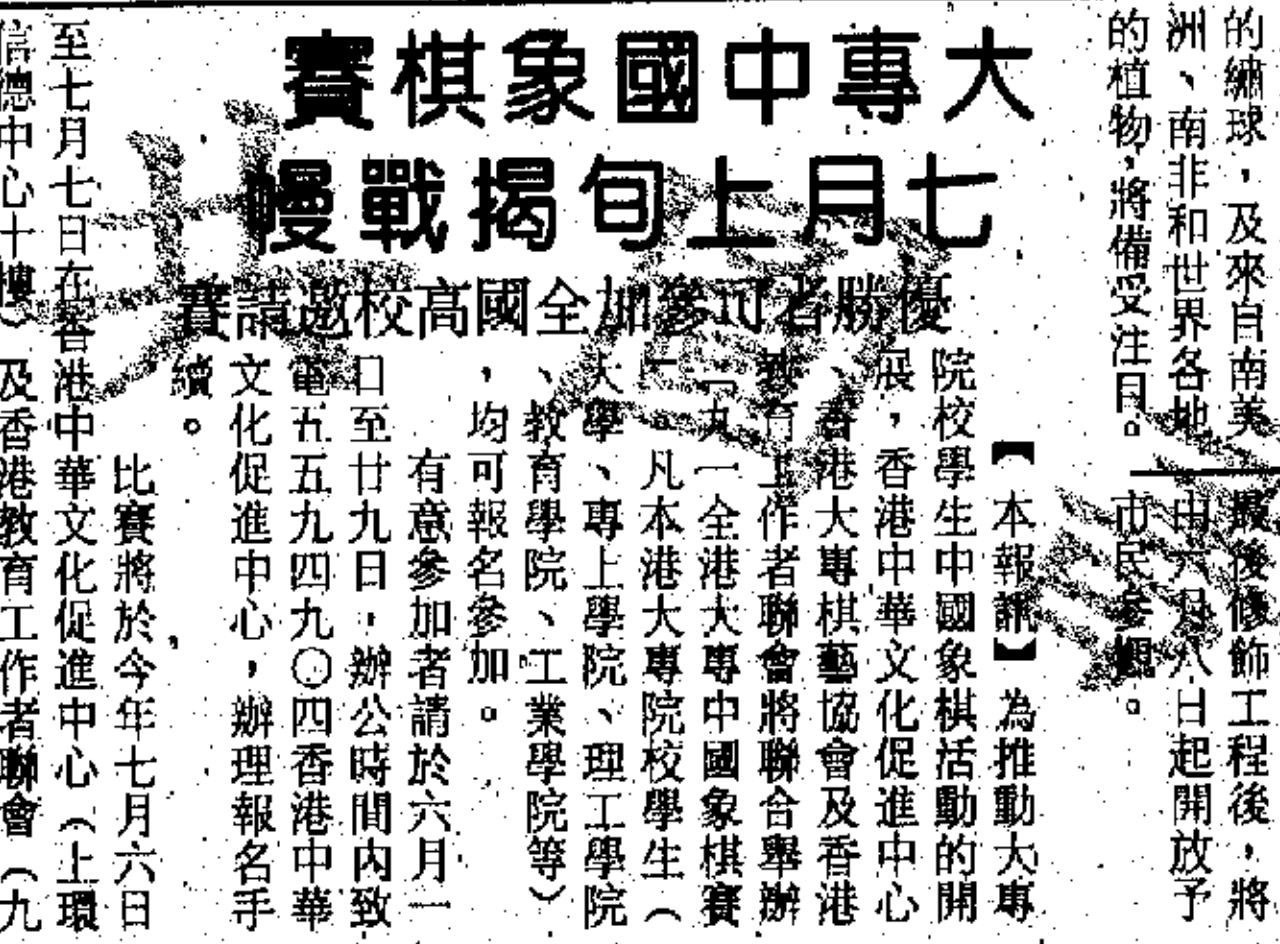 的繡球，及來自南美
洲、南非和世界各地
的植物，將備受注目。
最後修飾工程後，將
由六月八日起開放予
市民參觀。
大專中國象棋賽
七月上旬揭戰幔
優勝者可參加全國高校邀請賽
【本報訊】為推動大專
院校學生中國象棋活動的開
展，香港中華文化促進中心
、香港大專棋藝協會及香港
教育工作者聯會將聯合舉辦
「九一全港大專中國象棋賽
」。凡本港大專院校學生（
大學、專上學院、理工學院
、教育學院、工業學院等）
，均可報名參加。
有意參加者請於六月一
日至廿九日，辦公時間內致
電五五九四九〇四香港中華
文化促進中心，辦理報名手
續。
比賽將於今年七月六日
至七月七日在香港中華文化促進中心（上環
信德中心十樓）及香港教育工作者聯會（九